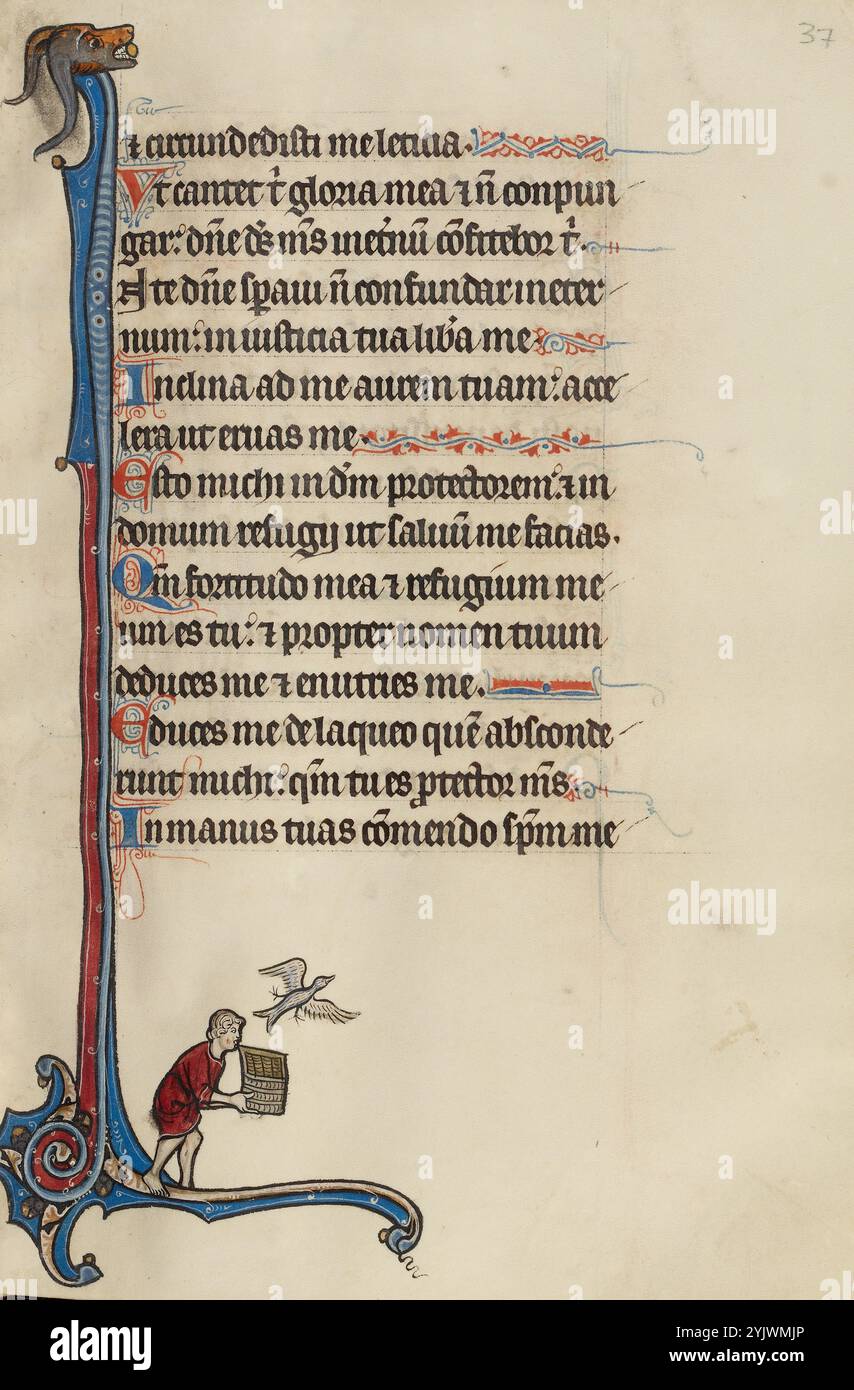 37
⁊ circundedisti me leticia.
Vt cantet t̉ gloria mea ⁊ ñ conpun
gar: dñe ds̄ ms̄ inet̉nū cōfitebor t̉.
A te dñe sꝑaui ñ confundar in eter
num: in iusticia tua lib̉a me
Inclina ad me aurem tuam: acce
lera ut eruas me.
Esto michi in dm̄ protectorem: ⁊ in
domum refugij ut saluū me facias.
Qm̄ fortitudo mea ⁊ refugium me
um es tu: ⁊ propter nomen tuum
deduces me ⁊ enutries me.
Educes me de laqueo quē absconde
runt michi: qm̄ tu es ꝓtector ms̄.
In manus tuas cōmendo sp̄m me
alamy
Image ID: 2YJWMJP
www.alamy.com